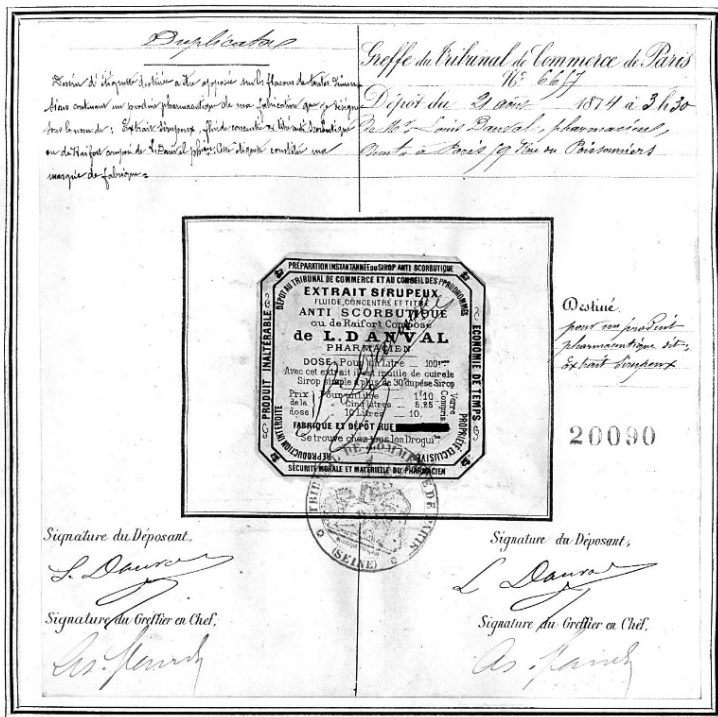 Duplicata
Dessin d'étiquette destinée à être apposée sur les flacons de toutes dimen
sions contenant un produit pharmaceutique de ma fabrication que je désigne
sous le nom de : Extrait Sirupeux, fluide concentré & titré anti Scorbutique
ou de Raifort composé de L. Danval phien. Cette étiquette constitue ma
marque de fabrique =
Greffe du Tribunal de Commerce de Paris
N° 6657
Dépôt du 21 août 1874 à 3h30
De Mr Louis Danval, pharmacien,
à Paris 59 Rue des Poissonniers
PRÉPARATION INSTANTANNÉE DU SIROP ANTI SCORBUTIQUE
DÉPOT AU TRIBUNAL DE COMMERCE ET AU CONSEIL DES PPRUDHOMMES
PRODUIT INALTÉRABLE
ECONOMIE DE TEMPS
EXTRAIT SIRUPEUX
FLUIDE, CONCENTRÉ ET TITRÉ
ANTI SCORBUTIQUE
ou de Raifort Composé
de L. DANVAL
PHARMACIEN
DOSE: Pour un Litre _ 100
Avec cet extrait il est inutile de cuire le
Sirop simple à plus de 30° du pèse Sirop
Prix de la dose
Pour un litre _ 1"10
" Cinq litres _ 5,25
" 10 Litres _ 10,
Verre Compris
FABRIQUE ET DÉPÔT RUE
Se trouve chez tous les Drogui
REPRODUCTION INTERDITE
PROPRIÉTÉ EXCLUSIVE
SÉCURITÉ MORALE ET MATÉRIELLE DU PHARMACIEN
TRIBUNAL DE COMMERCE DE PARIS
(SEINE)
Destiné
pour un produit
pharmaceutique dit :
Extrait Sirupeux
20090
Signature du Déposant,
L. Danval
Signature du Greffier en Chef,
Signature du Déposant,
L Danval
Signature du Greffier en Chef,